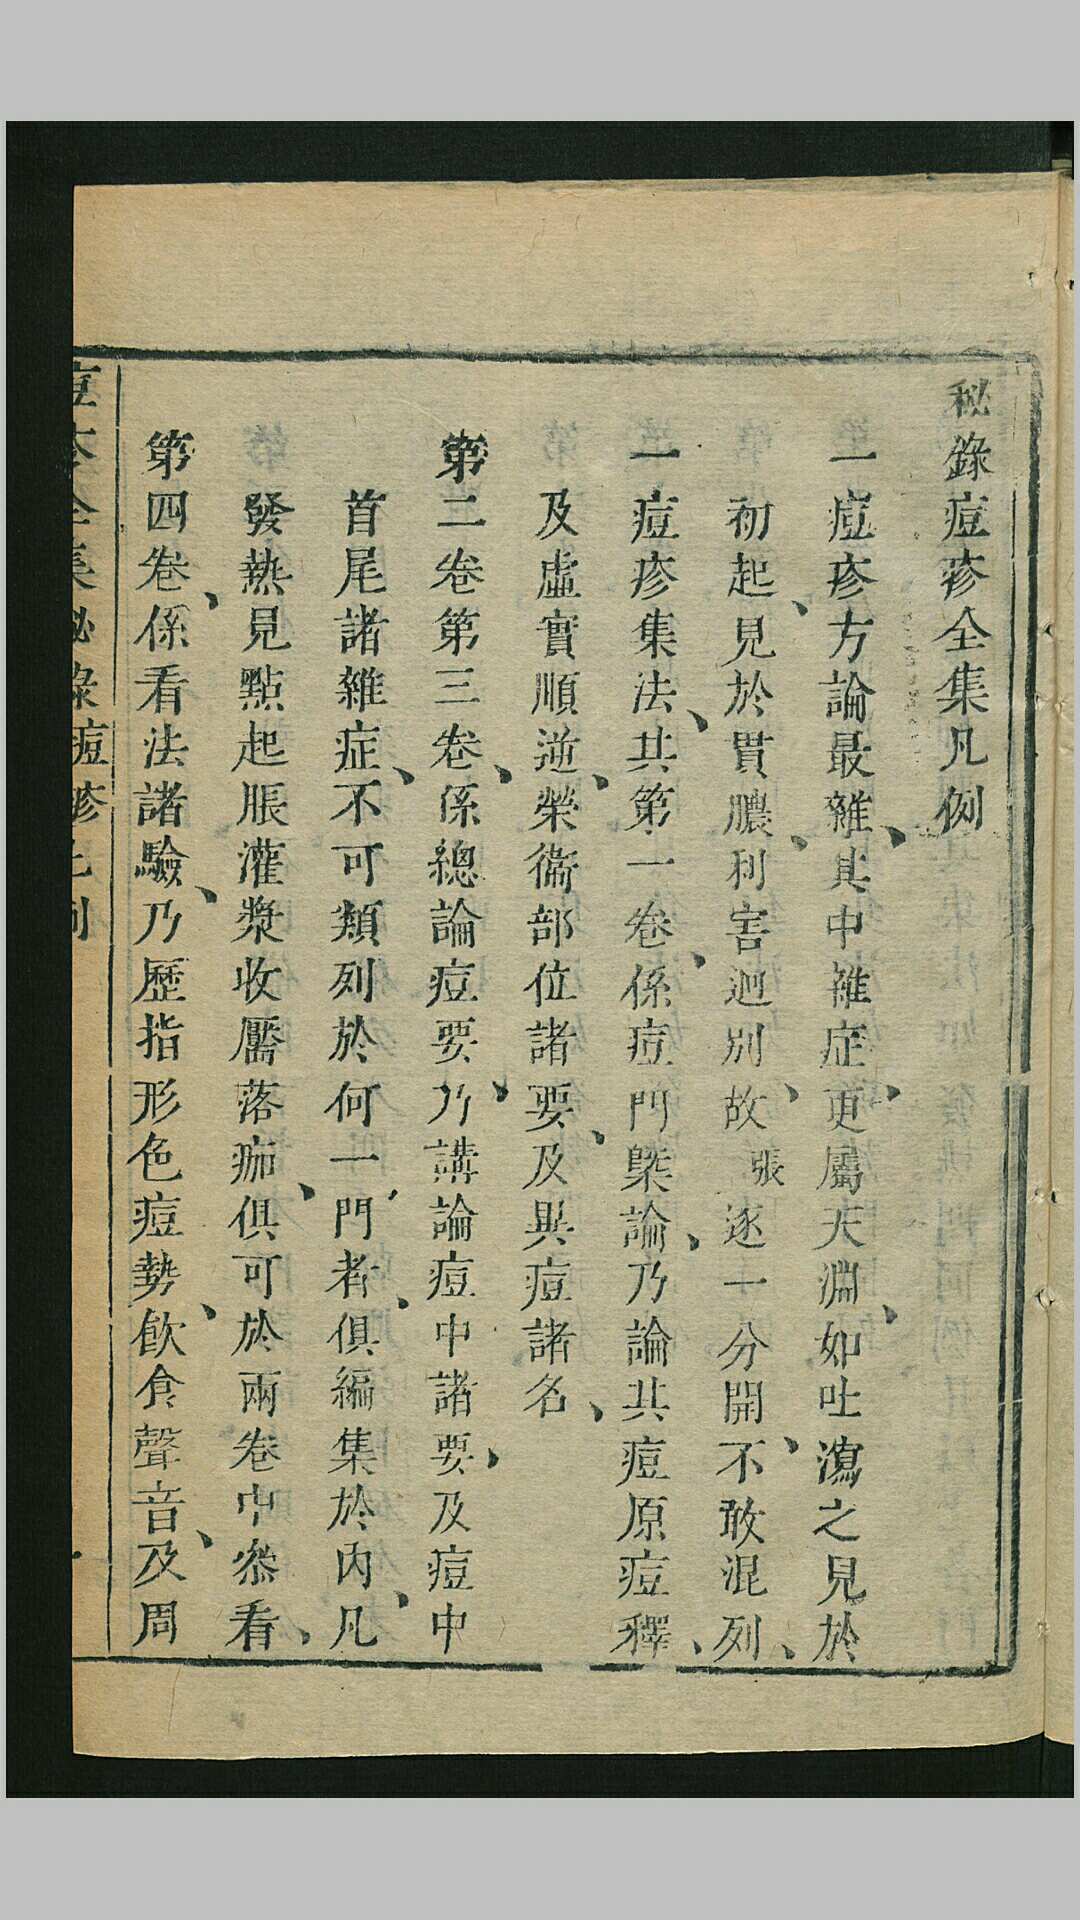 秘錄痘疹全集凡例
一痘疹方論最雜、其中雜症、更屬天淵、如吐瀉之見於
初起、見於貫膿、利害迥別、故張逐一分開、不敢混列、
一痘疹集法、共第一卷、係痘門槩論、乃論其痘原痘釋、
及虛實順逆、榮衛部位諸要、及異痘諸名、
第二卷第三卷、係總論痘要、乃講論痘中諸要、及痘中
首尾諸雜症、不可類列於何一門者、俱編集於內、凡
發熱見點起脹灌漿收靨落痂、俱可於兩卷中叅看、
第四卷、係看法諸驗、乃歷指形色痘勢、飲食聲音、及周
痘疹全集秘錄痘疹凡例